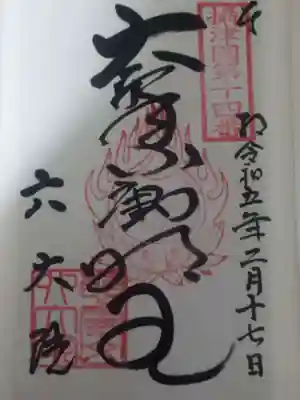 奉
於令和五年二月十七日
摂津国第十四番
大聖不動明王
六大院